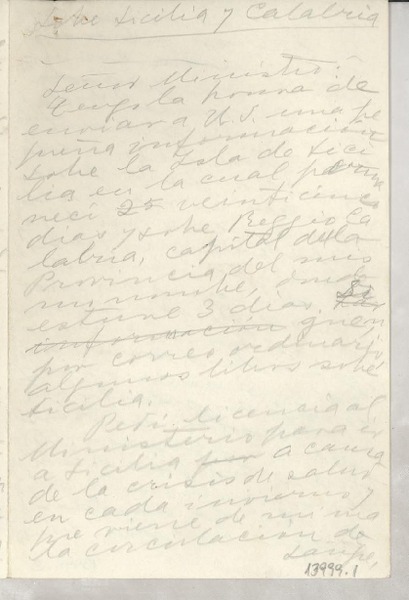 Sobre Sicilia y Calabria
Señor Ministro:
Tengo la honra de
enviar a U.S. una pe
queña información
sobre la Isla de Sici
lia en la cual perma
necí 25 veinticinco
dias y sobre Reggio Ca
labria, capital de la
Provincia del mis
mo nombre, donde
estuve 3 dias.
información
por correo ordinario
algunos libros sobre
Sicilia.
Pedí licencia al
Ministerio para ir
a Sicilia por a causa
de la crisis de salud
en cada invierno y
que viene de mi ma
la circulación de
sangre,
13999.1